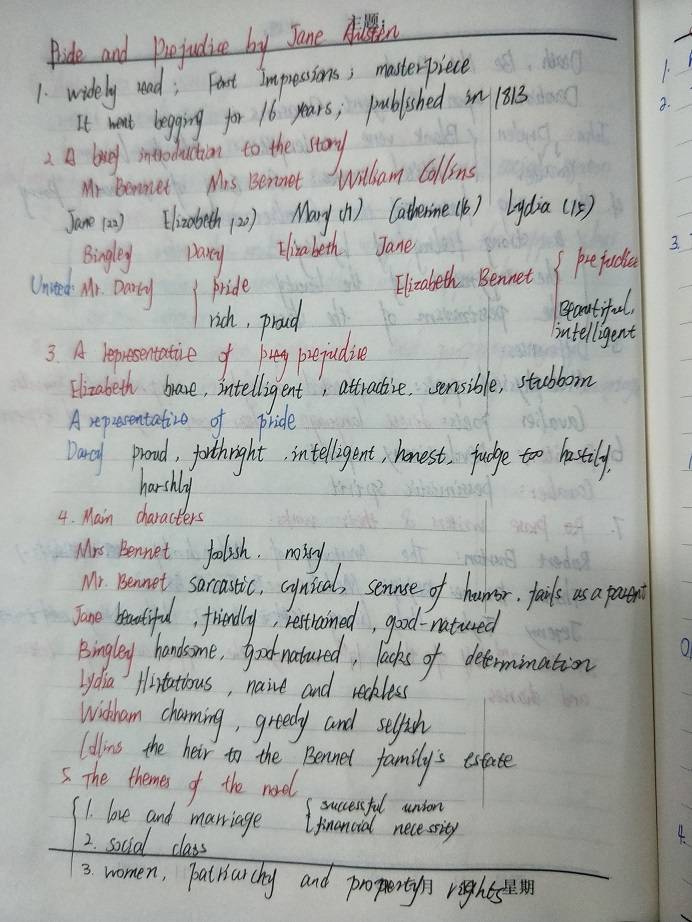 主题:
Pride and Prejudice by Jane Austen
1. widely read; First Impressions; masterpiece
It went begging for 16 years, published in 1813
2. A brief introduction to the story
Mr Bennet Mrs Bennet William Collins
Jane (22) Elizabeth (20) Mary (17) Catherine (16) Lydia (15)
Bingley Darcy Elizabeth Jane
United: Mr. Darcy { pride Elizabeth Bennet { prejudice
rich, proud Beautiful,
intelligent
3. A representative of prejudice
Elizabeth brave, intelligent, attractive, sensible, stubborn
A representative of pride
Darcy proud, forthright, intelligent, honest, judge too hastily,
harshly
4. Main characters
Mrs Bennet foolish. noisy
Mr. Bennet sarcastic, cynical, sennse of humor, fails as a parent
Jane beautiful, friendly, restrained, good-natured
Bingley handsome, good-natured, lacks of determination
Lydia flirtatious, naive and reckless
Wickham charming, greedy and selfish
Collins the heir to the Bennet family's estate
5. The themes of the novel
{ 1. love and marriage { successful union
financial necessity
2. social class
3. women, patriarchy and property rights
月 星期